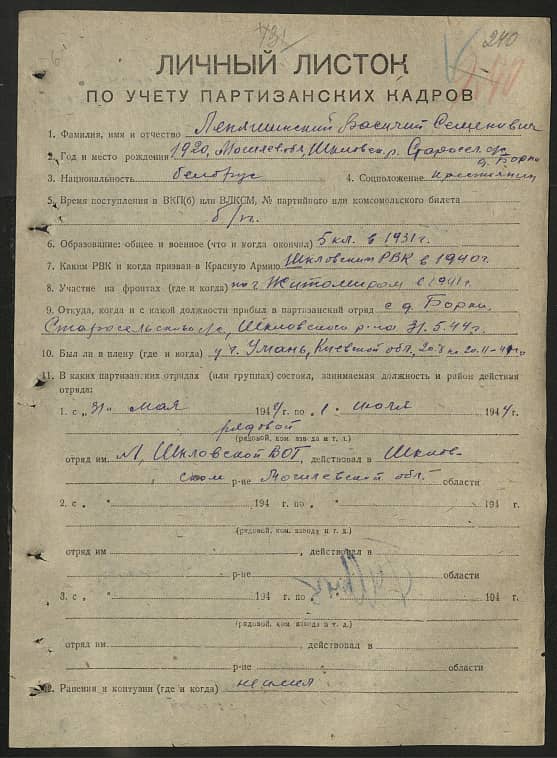 731
240
240
ЛИЧНЫЙ ЛИСТОК
ПО УЧЕТУ ПАРТИЗАНСКИХ КАДРОВ
1. Фамилия, имя и отчество Василий Семенович
2. Год и место рождения 1920, Могилев обл, Шкловск. р. Старосел с/с
д. Борки
3. Национальность белорус 4. Соцположение крестьянин
5. Время поступления в ВКП(б) или ВЛКСМ, № партийного или комсомольского билета
б/п.
6. Образование: общее и военное (что и когда окончил) 5 кл. в 1931 г.
7. Каким РВК и когда призван в Красную Армию Шкловским РВК в 1940 г.
8. Участие на фронтах (где и когда) под г. Житомиром в 1941 г.
9. Откуда, когда и с какой должности прибыл в партизанский отряд с д. Борки,
Старосельского с/с, Шкловского р-на 31.5.44 г.
10. Был ли в плену (где и когда) у г. Умань, Киевской обл.,
11. В каких партизанских отрядах (или группах) состоял, занимаемая должность и район действия
отряда:
1. с „31" мая 1944 г. по „1. июля 1944 г.
рядовой
(рядовой, ком. взвода и т. д.)
отряд им. Шкловской ВОГ, действовал в Шклов-
ском р-не Могилевской обл. области
2. с „ " 194 г. по „ " 194 г.
(рядовой, ком. взвода и т. д.)
отряд им. , действовал в
р-не области
3. с „ " 194 г. по „ " 194 г.
(рядовой, ком. взвода и т. д.)
отряд им. , действовал в
р-не области
12. Ранения и контузии (где и когда) не имел